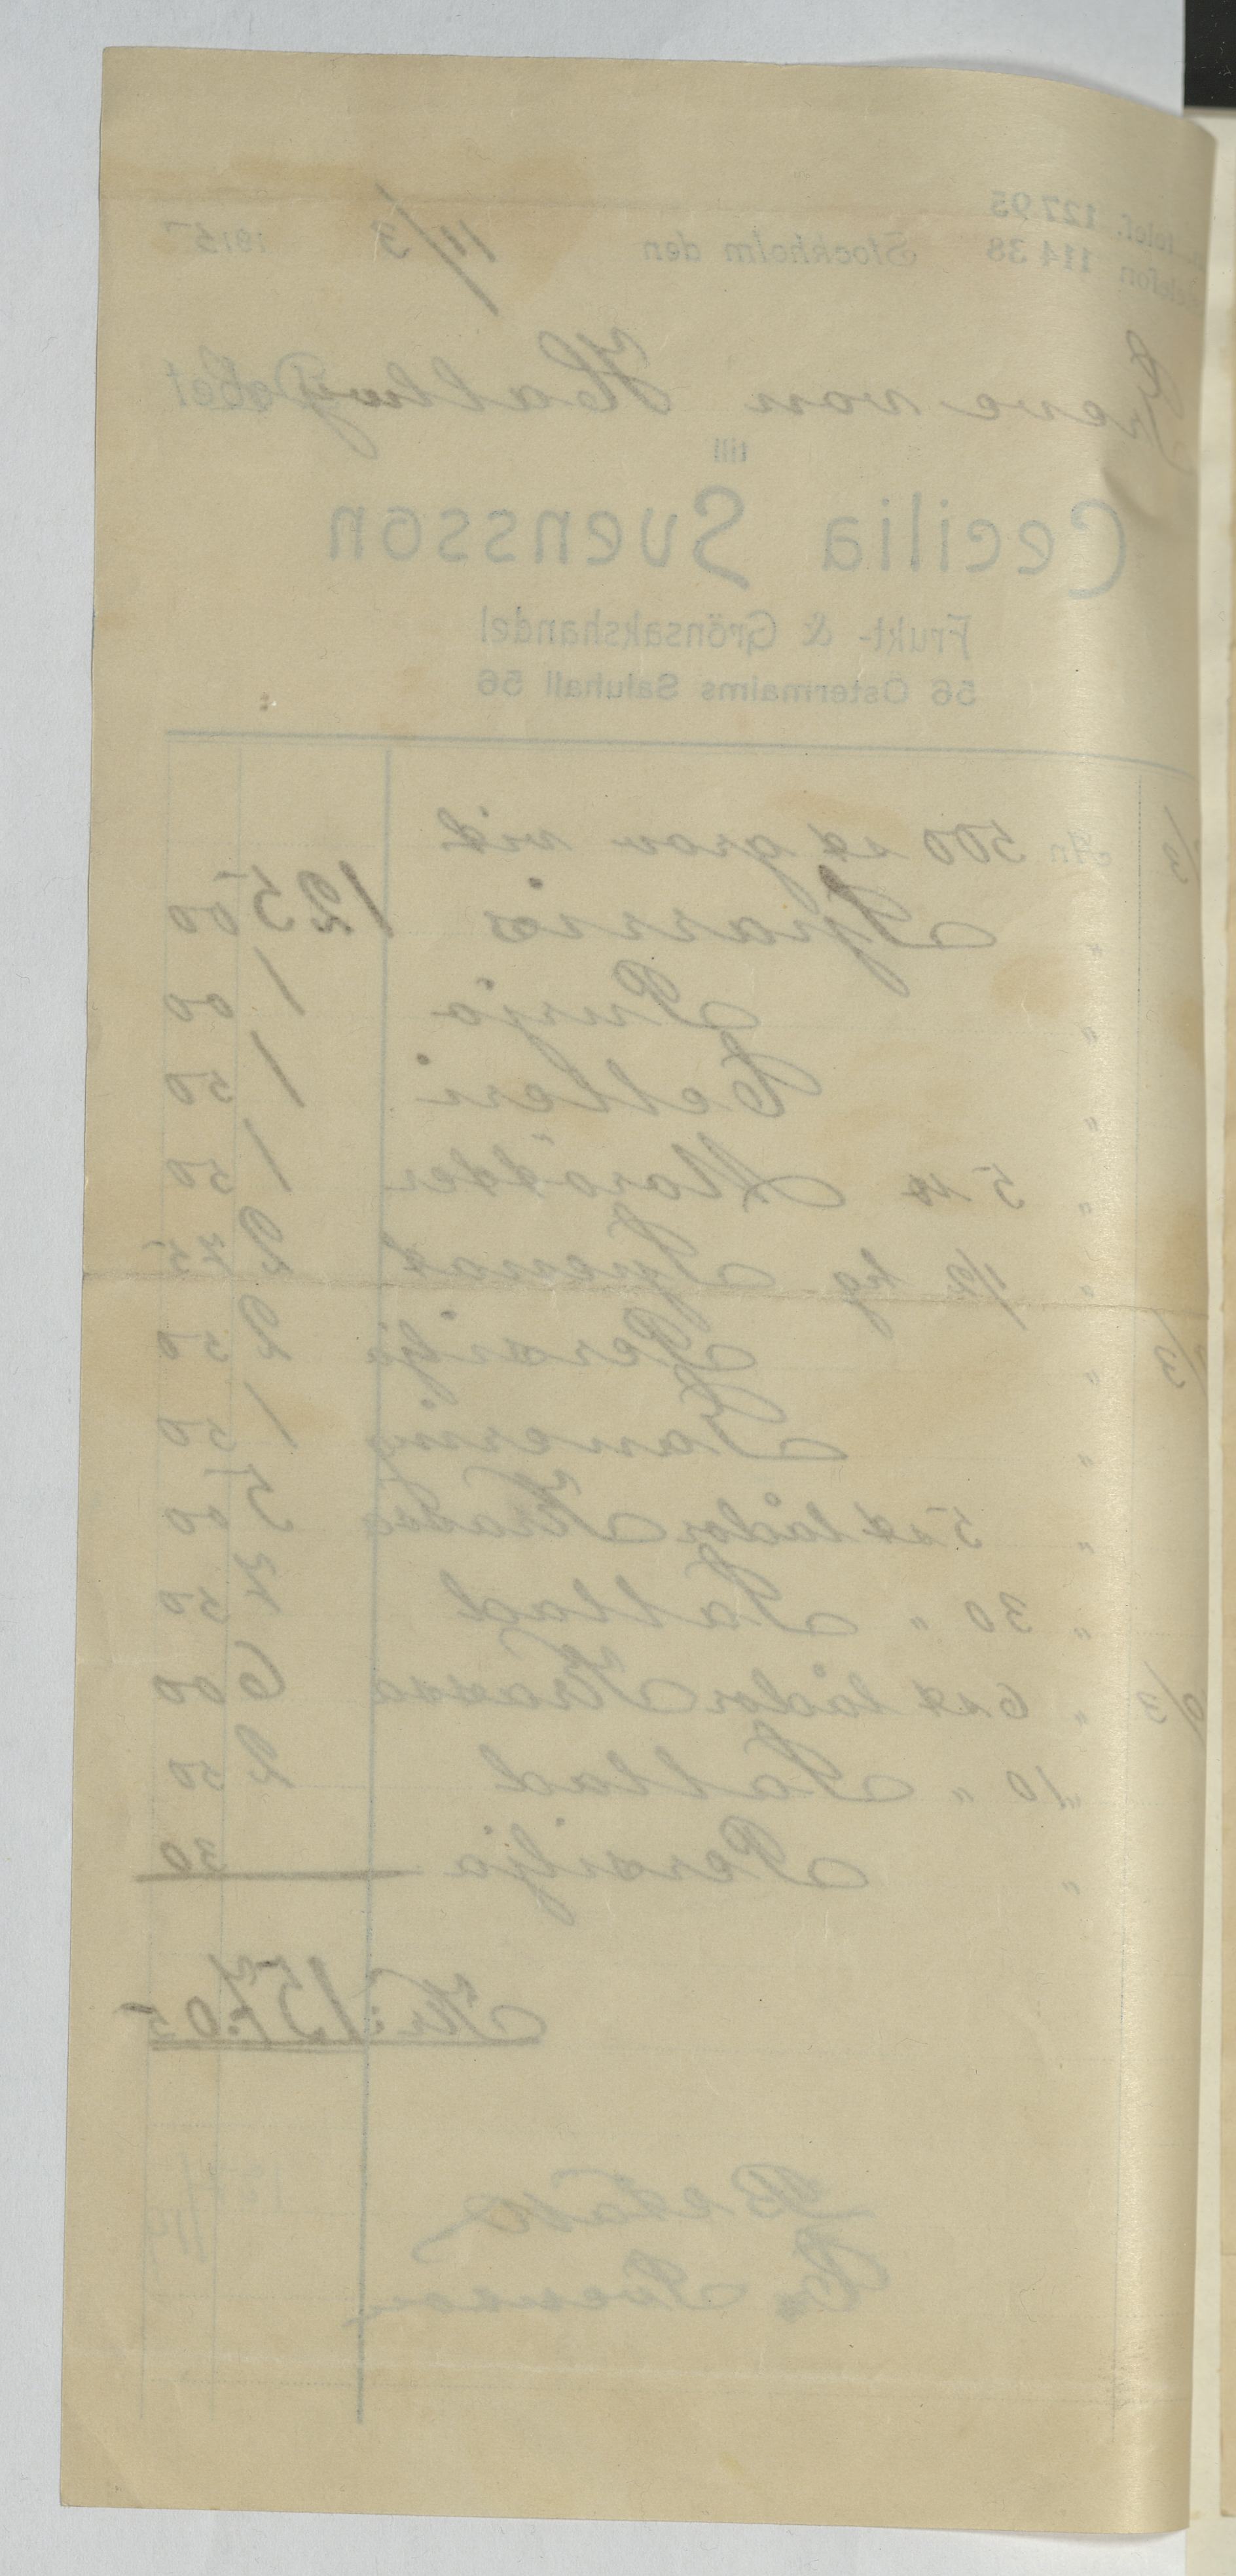 telef. 127 95
Telefon 114 38 Stockholm den 11/3 1915
Greve von Hallwyl Debet
till
Cecilia Svensson
Frukt- & Grönsakshandel
56 Östermalms Saluhall 56
/3 An 500 st grov vit
" Sparris 125 00
" Purjo 1 00
" Selleri 1 50
" 5 Morötter 1 50
" 1/2 kg Spenat 2 75
/3 " Persilja 2 50
" Garnering 1 50
" 5 st lådor Krasse 5 00
" 30 " Sallad 7 50
/3 " 6 st lådor Krasse 6 00
" 10 " Sallad 2 50
" Persilja 30
Kr: 157.05
Betalt
C. Svensson